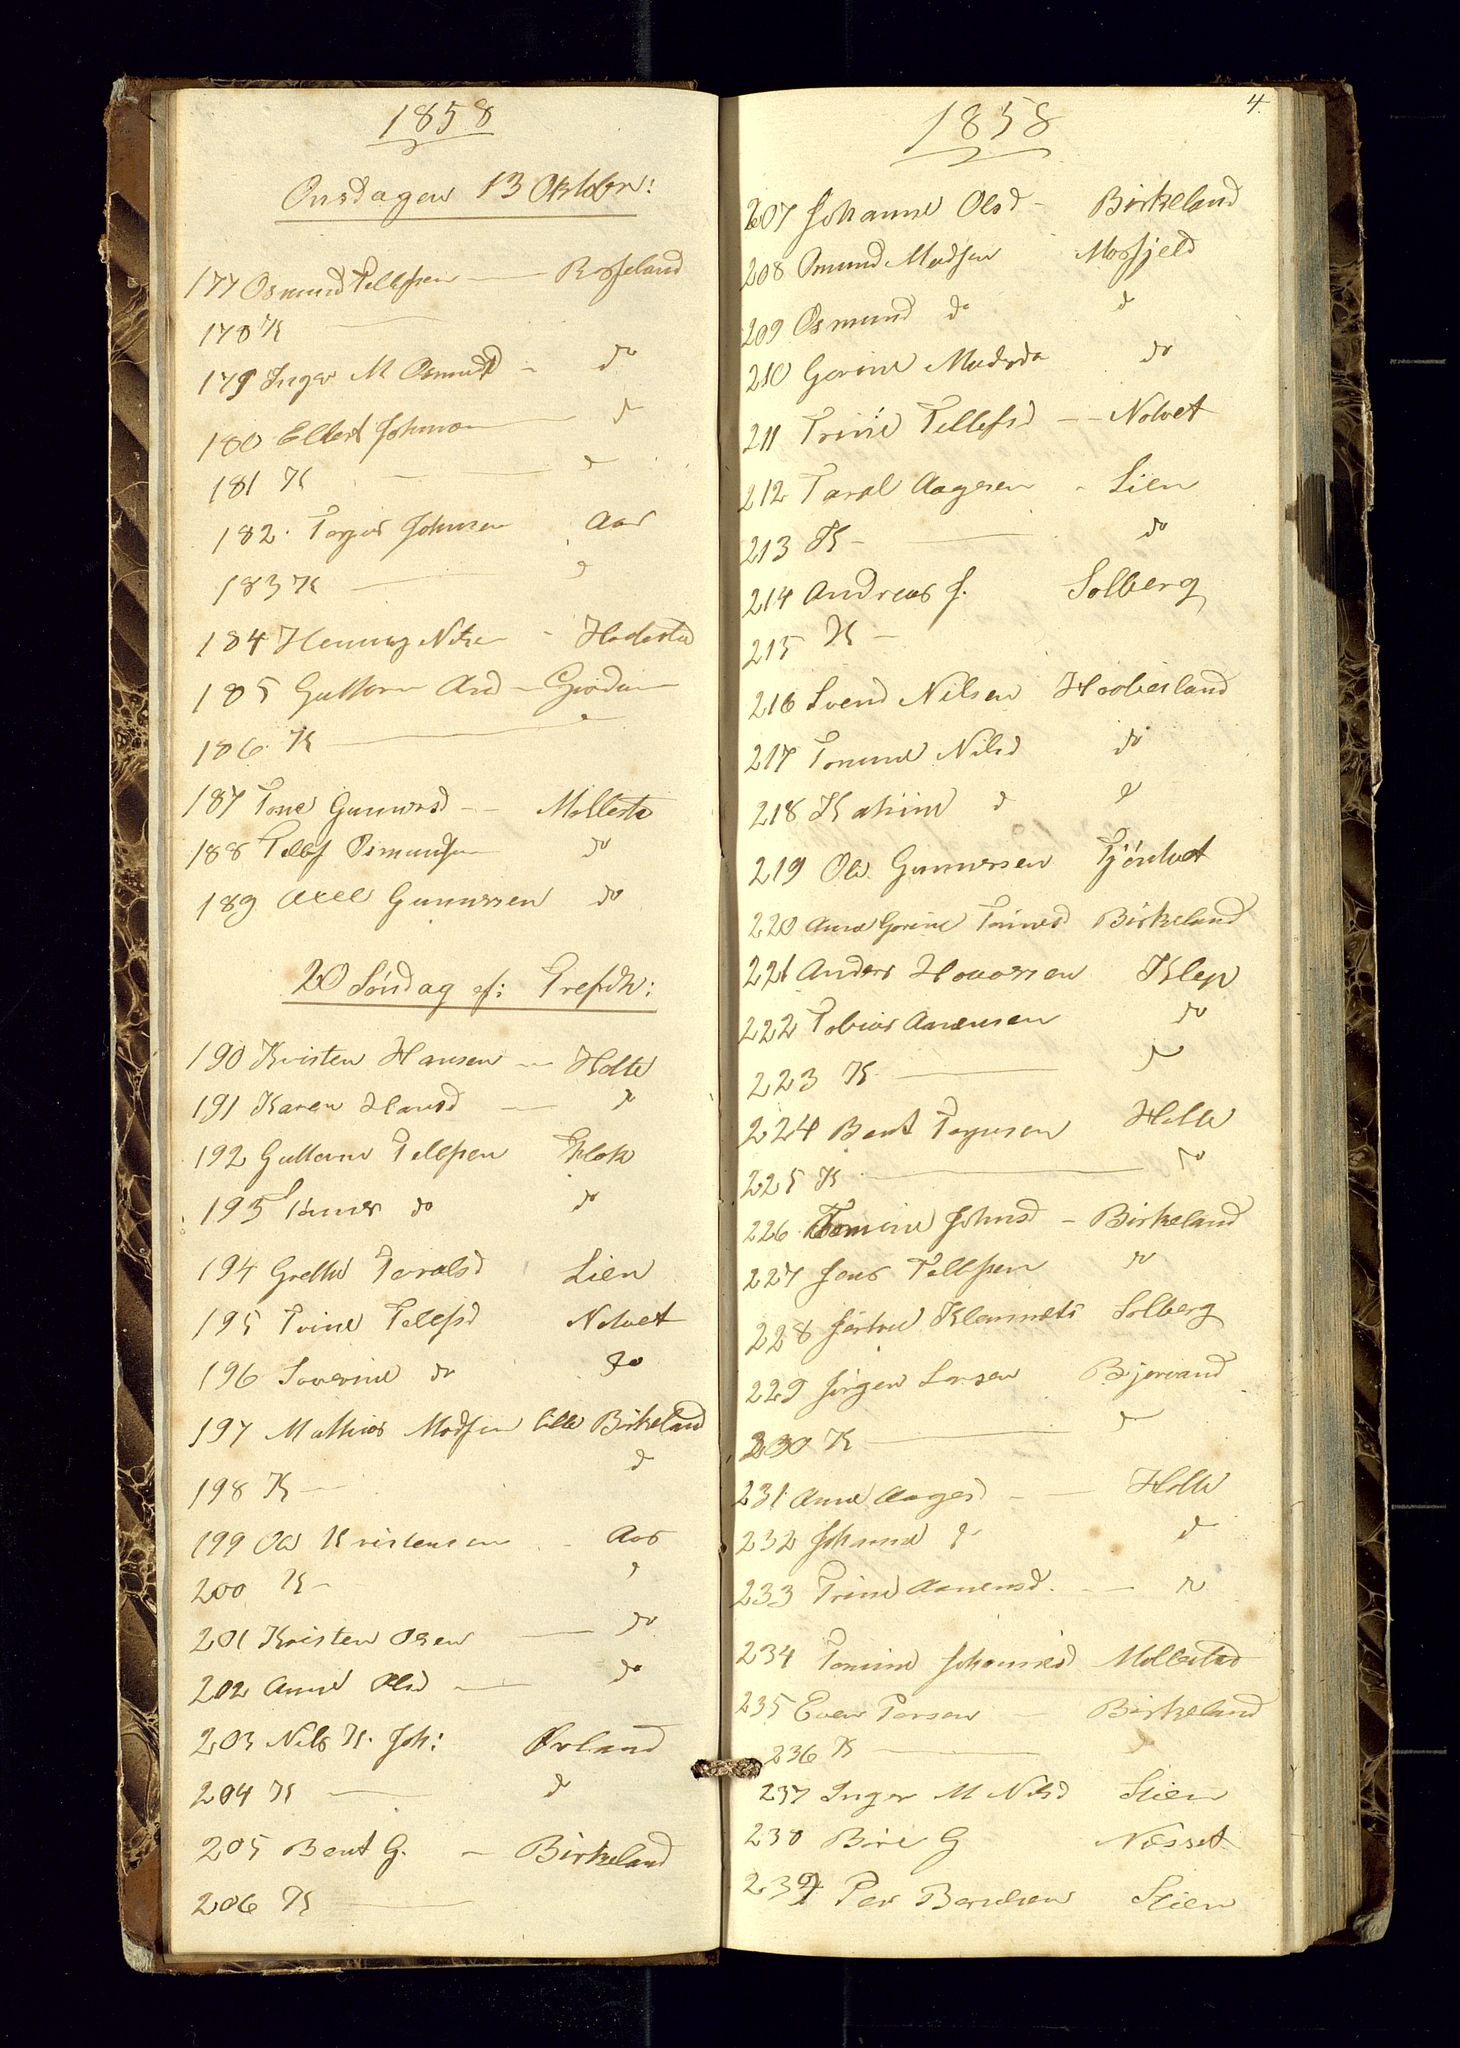 1858
Onsdagen 13 Oktobr:
177 Osmund Tellefsen Rosseland
178 K
179 Inger M Osmund do
180 Ellert Johnsen d
181 K d
182. Terjes Johnsen Aas
183 K d
184 Henning Nilsen
185 Guttorm And
186. K
187 Tone Gunnersd Mollesta
188 Tellef Osmundsen do
189 Axel Gunnersen do
20 Søndag ef: Trefdh:
190 Kristen Hansen Holte
191 Karen Hansd d
192 Guttorm Tellefsen Flok
193 do do
194 Grethe Taralsd Lien
195 Trine Tellefsd Nolvet
196 Severine do do
197 Mathias Madsen lille Birkeland
198 K d
199 Ole Kristensen Aas
200 K d
201 Kristen Olsen do
202 Anne Olsd do
203 Nils K. Joh: Ørland
204 K d
205 Bent G. Birkeland
206 K
4.
1858
207 Johanne Olsd Birkeland
208 Osmund Madsen Mosfjeld
209 Osmund do d
210 Gorine Madsda do
211 Trine Tellefsd Nolvet
212 Taral Aagesen Lien
213 K do
214 Andreas J. Solberg
215 K
216 Svend Nilsen Hooverland
217 Tomine Nilsd do
218 Katrine d d
219 Ole Gunnersen
220 Anne Gorine Birkeland
221 Anders Hovorsen Klep
222 Tobias Aanensen do
223 K d
224 Bent Terjusen Holte
225 K do
226. Tomine Johnsd Birkeland
227 Jens Tellefsen do
228 Klemmets Solberg
229 Jørgen Larsen Bjorvand
230 K d
231. Anne Aagesd Holte
232 Johanne d d
233 Trine Aanensd. do
234 Tomine Johannesd Mollestad
235 Even Torsen Birkeland
236 K
237 Inger M Nilsd Stien
238 Bire G Næsset
239 Per Berulsen Stien